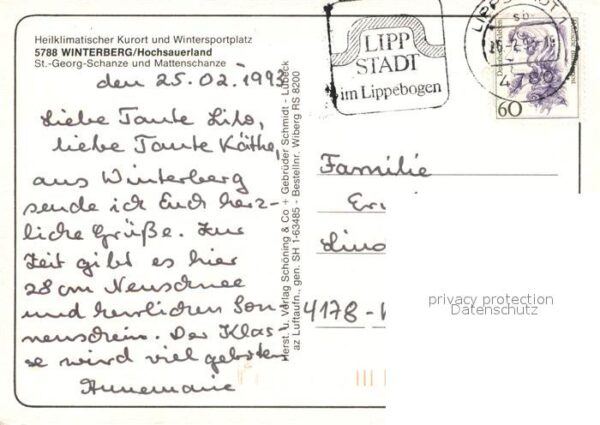 Heilklimatischer Kurort und Wintersportplatz
5788 WINTERBERG/Hochsauerland
St.-Georg-Schanze und Mattenschanze
den 25.02.1993
Liebe Tante Lilo,
liebe Tante Käthe,
aus Winterberg
sende ich Euch herz-
liche Grüße. Zur
Zeit gibt es hier
28 cm Neuschnee
und herrlichen Son-
nenschein. Der Klas-
se wird viel geboten
Annemarie
Herst. u. Verlag Schöning & Co + Gebrüder Schmidt - Lübeck
az Luftaufn., gen. SH 1-63485 - Bestellnr. Wiberg RS 8200
LIPP
STADT
im Lippebogen
LIPPSTADT 1
4780
60
Familie
Er
Lind
4178-
privacy protection
Datenschutz